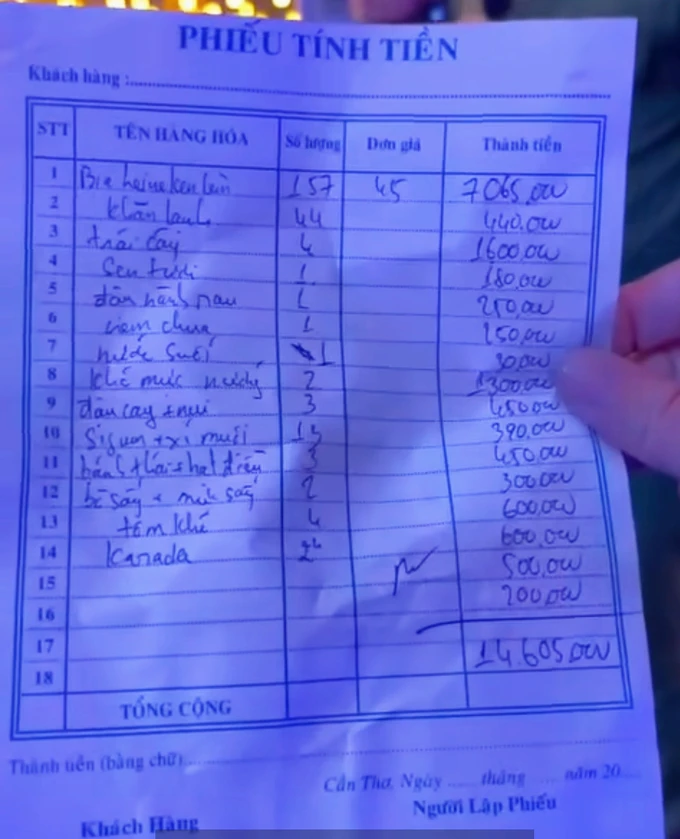 PHIẾU TÍNH TIỀN
Khách hàng :
STT TÊN HÀNG HÓA Số lượng Đơn giá Thành tiền
1 Bia heineken lùn 157 45 7065,000
2 khăn lạnh 44 440,000
3 trái cây 4 1600,000
4 Sen tươi 1 180,000
5 1 250,000
6 1 250,000
7 nước suối 1 30,000
8 Khô mực nướng 2 1300,000
9 3 450,000
10 xí muội 13 390,000
11 bánh thái + hạt điều 3 450,000
12 bò sấy + mực sấy 2 300,000
13 tôm khô 4 600,000
14 Kanada 600,000
15 500,000
16 200,000
17 14.605,000
18
TỔNG CỘNG
Thành tiền (bằng chữ)
Cần Thơ, Ngày tháng năm 20
Khách Hàng Người Lập Phiếu